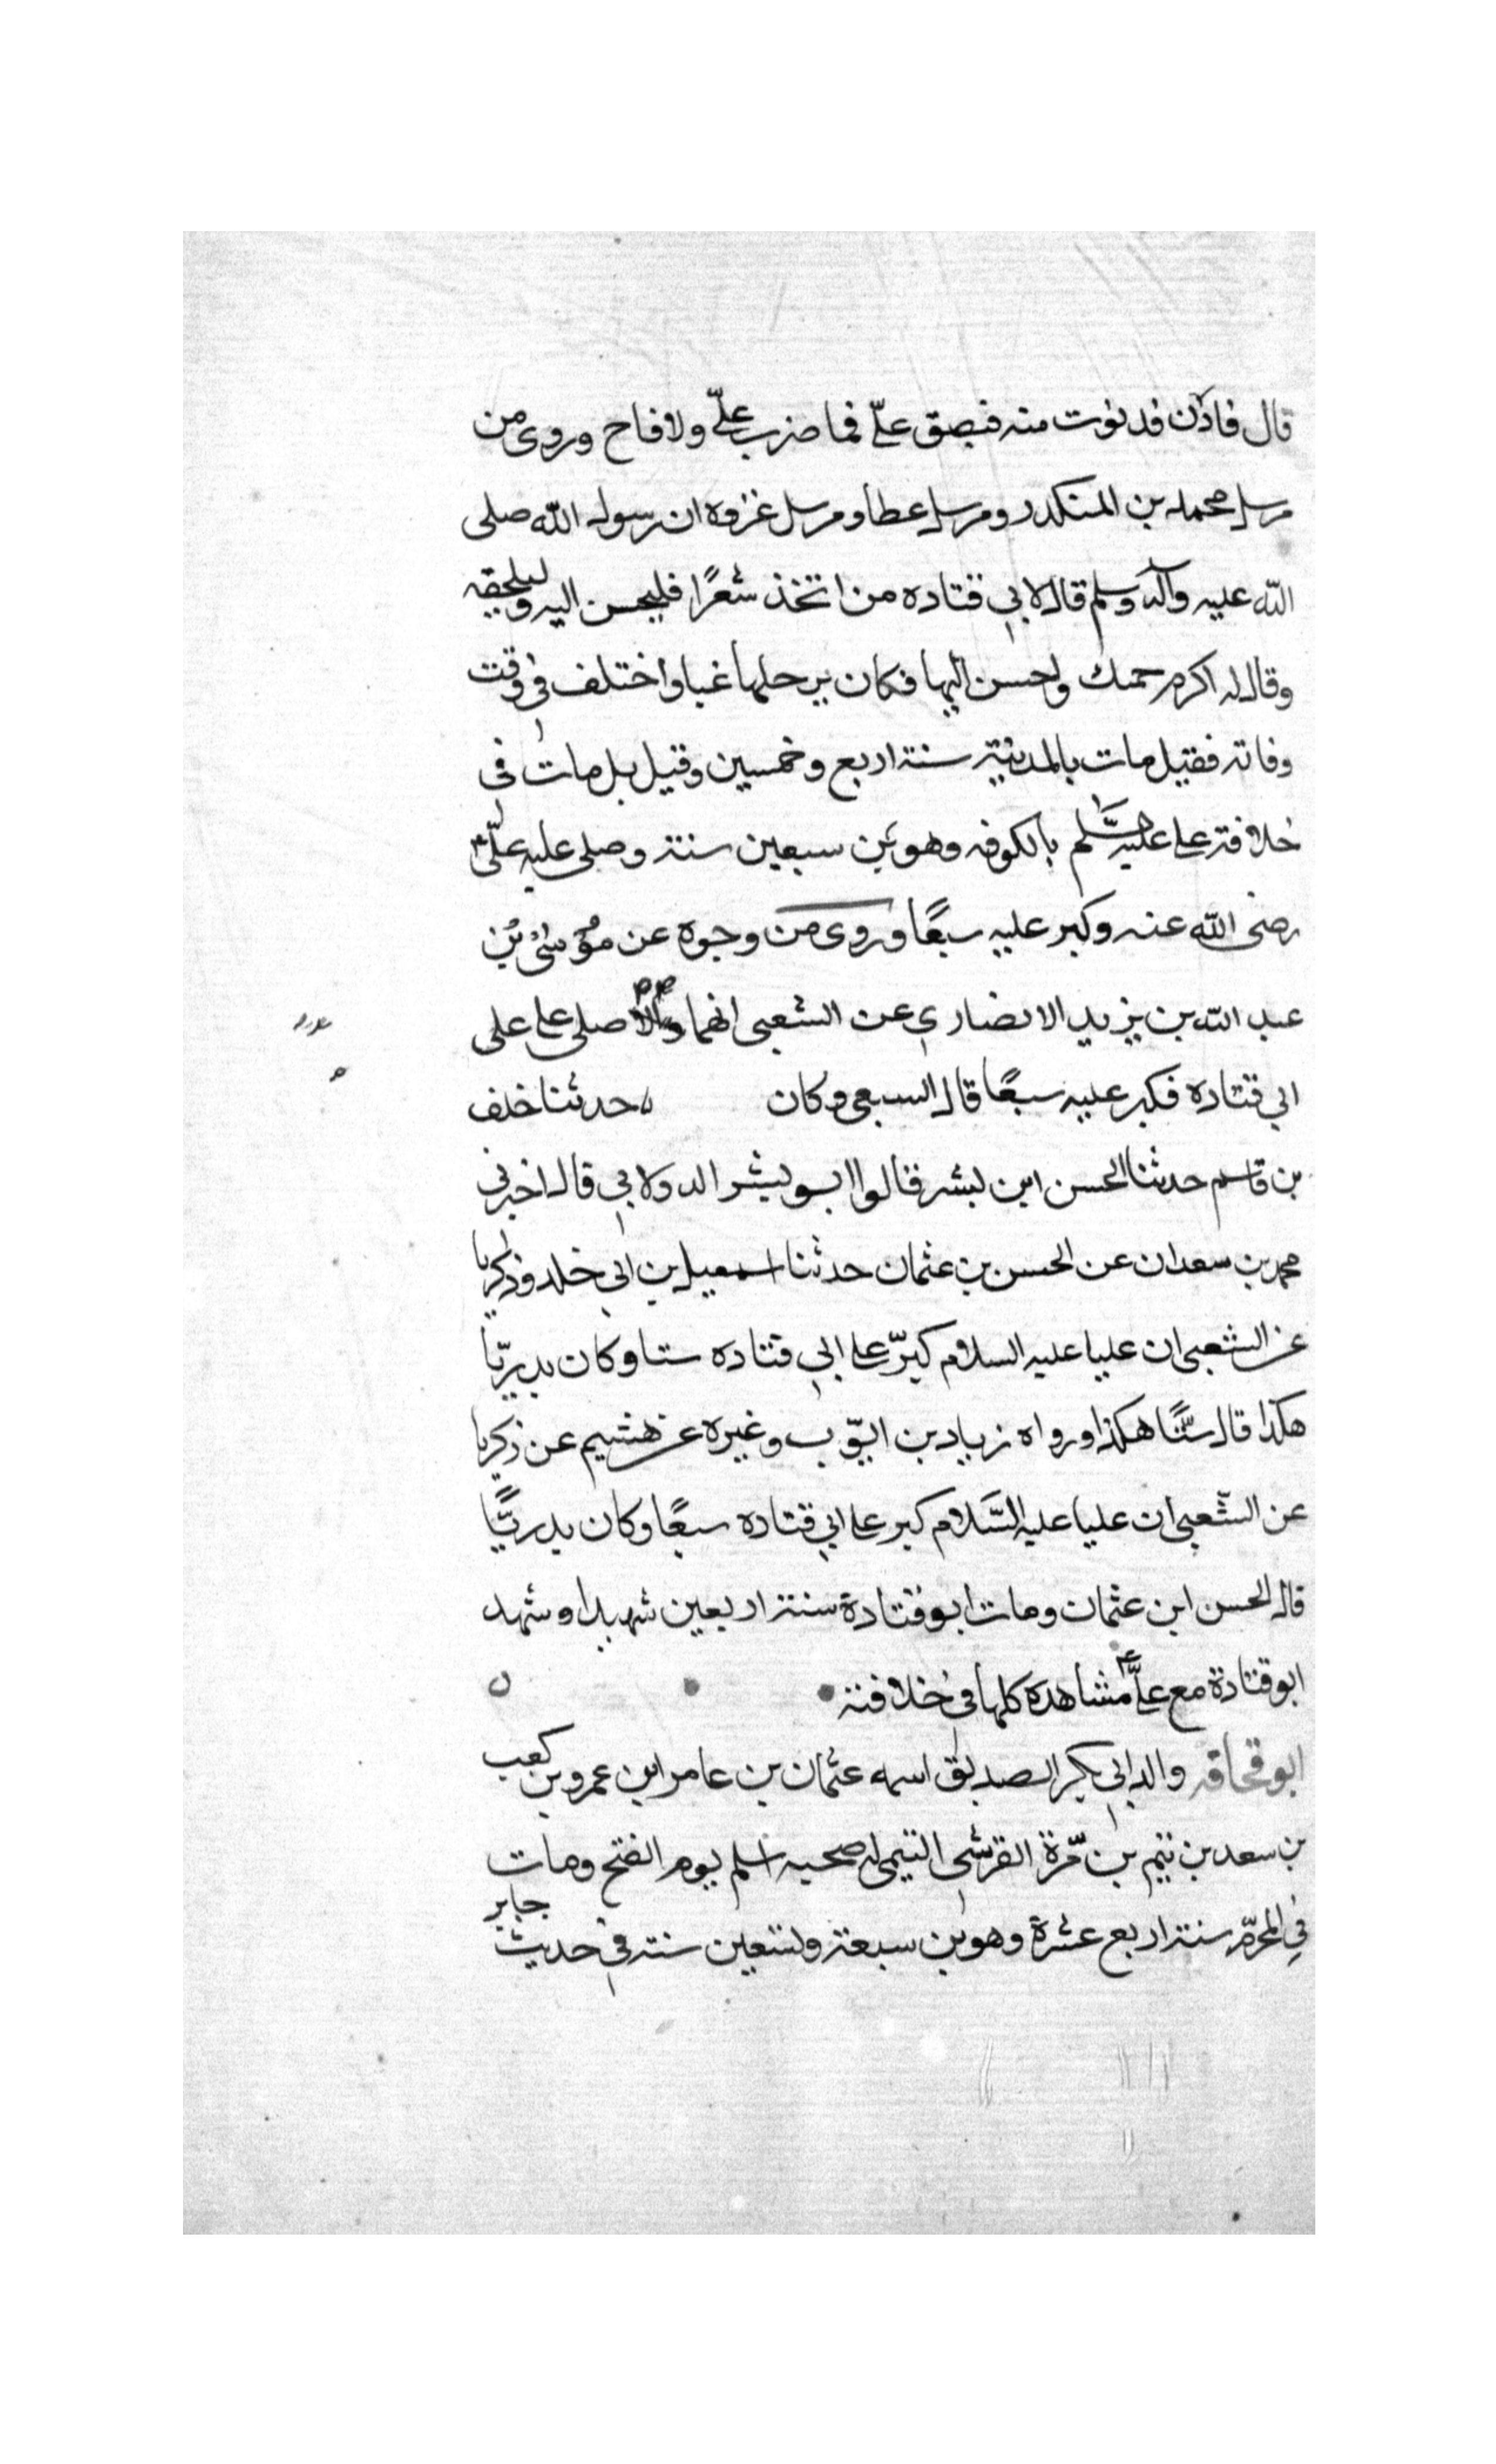 قال فاذن فدنوت منه فبصق علىّ فما ضرب علىّ ولا فاح وروى من
مرسل محمد بن المنكدر ومرسل عطا ومرسل عزوه ان رسول الله صلى
الله عليه وآله وسلم قال لابي قتاده من اتخذ شعرًا فليحسن اليه وليلحقه
وقال له اكرم جمتك ولحسن اليها فكان يرجلها غبا واختلف فى وقت
وفاته فقيل مات بالمدينة سنة اربع وخمسين وقيل بل مات فى
خلافة على عليه السّلم بالكوفه وهو بن سبعين سنة وصلى عليه علىّ
رضى الله عنه وكبر عليه سبعًا وروى من وجوه عن موسى بن
عبد الله بن يزيد الانصارى عن الشعبى انهما قالا صلى على على
ابي قتاده فكبر عليه سبعًا قال السبعى وكان حدثنا خلف
بن قاسم حدثنا الحسن ابن بشر قالوا ابو بشر الدولابي قال اخبرنى
محمد بن سعدان عن الحسن بن عثمان حدثنا اسمعيل بن ابي خلد وزكريا
عن الشعبى ان عليا عليه السلام كبرّ على ابي قتاده ستا وكان بدريّا
هكذا قال ستًّا هكذا ورواه زياد بن ايّوب وغيره عن هشيم عن زكريا
عن الشّعبى ان عليا عليه السَّلام كبر على ابي قتاده سبعًا وكان بدريًّا
قال الحسن ابن عثمان ومات ابو قتادة سنة اربعين شهيدا وشهد
ابو قتادة مع علىّ مشاهده كلها فى خلافته
ابو قحافه والد ابي بكر الصديق اسمه عثمان بن عامر ابن عمرو بن كعب
بن سعد بن تيم بن مّرة القرشى التيمى له صحبه اسلم يوم الفتح ومات
فى المحرّم سنة اربع عشرة وهو بن سبعة وتسعين سنه فى حديث جابر